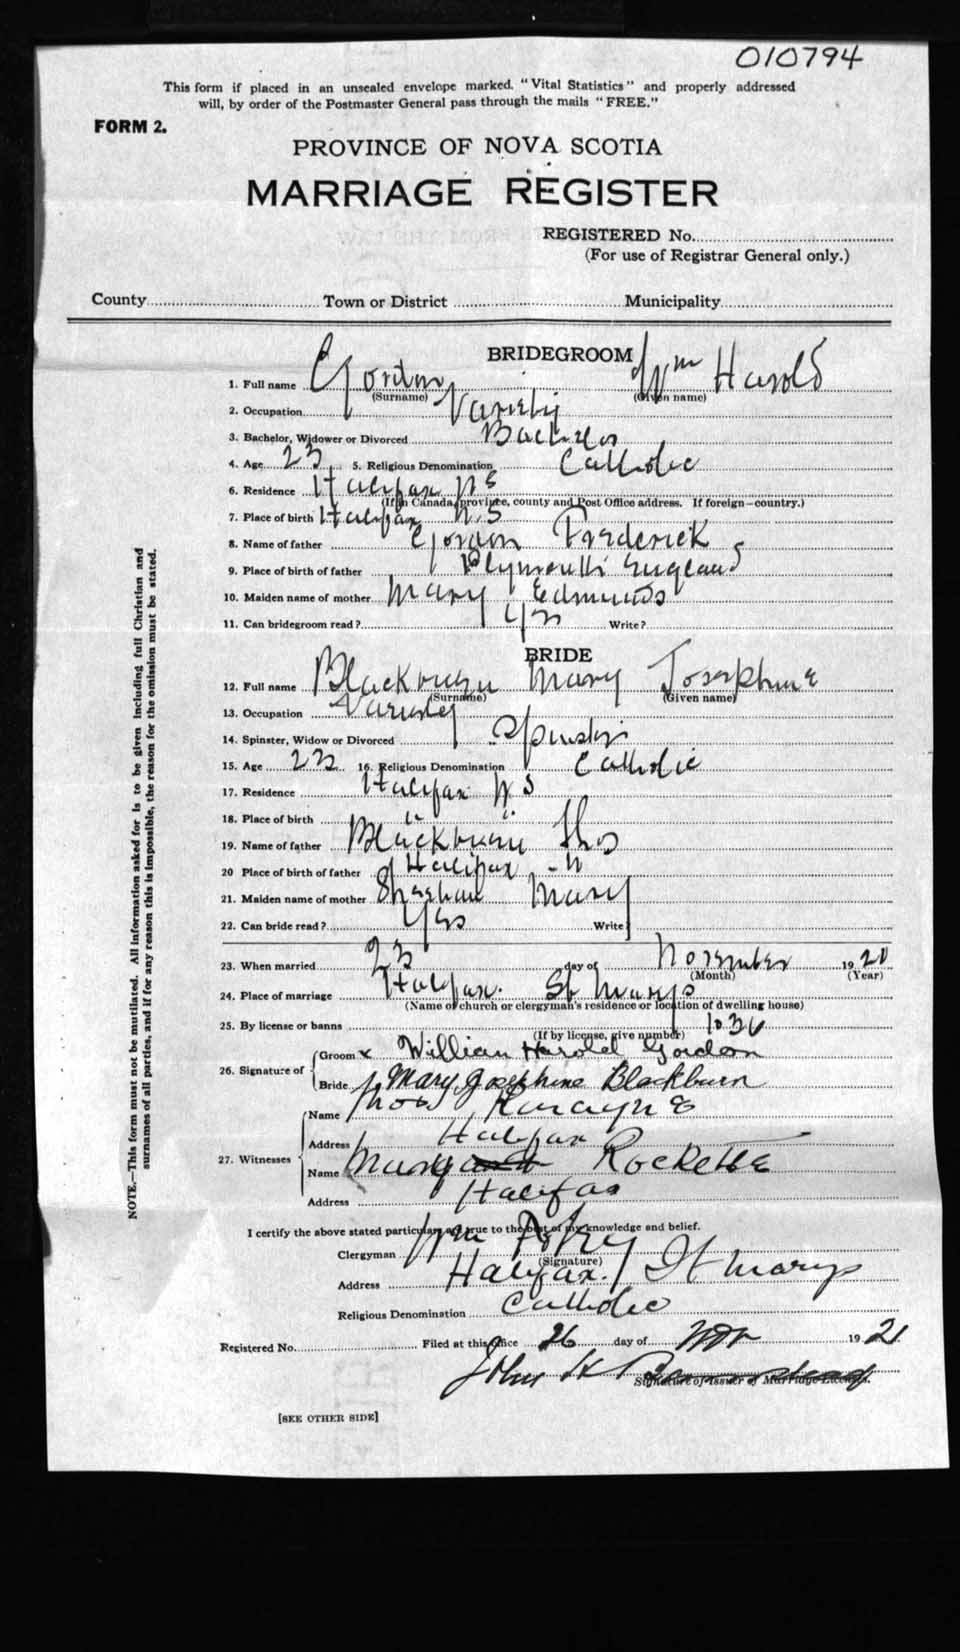 010794
This form if placed in an unsealed envelope marked. "Vital Statistics" and properly addressed
will, by order of the Postmaster General pass through the mails "FREE."
FORM 2.
PROVINCE OF NOVA SCOTIA
MARRIAGE REGISTER
REGISTERED No.
(For use of Registrar General only.)
County Town or District Municipality
BRIDEGROOM
1. Full name Gordon Wm Harold
(Surname) (Given name)
2. Occupation
3. Bachelor, Widower or Divorced Bachelor
4. Age 23 5. Religious Denomination Catholic
6. Residence Halifax NS
(If in Canada, province, county and Post Office address. If foreign—country.)
7. Place of birth Halifax N.S
8. Name of father Gordon Frederick
9. Place of birth of father Plymouth England
10. Maiden name of mother Mary Edmunds
11. Can bridegroom read? Yes Write?
BRIDE
12. Full name Blackburn Mary Josephine
(Surname) (Given name)
13. Occupation
14. Spinster, Widow or Divorced Spinster
15. Age 23 16. Religious Denomination Catholic
17. Residence Halifax NS
18. Place of birth " "
19. Name of father Blackburn Thos
20 Place of birth of father Halifax - N
21. Maiden name of mother Sheehan Mary
22. Can bride read? Yes Write
23. When married 23 day of November 19 21
(Month) (Year)
24. Place of marriage Halifax. St Marys
(Name of church or clergyman's residence or location of dwelling house)
25. By license or banns 1036
(If by license, give number)
26. Signature of
Groom x William Harold Gordon
Bride Mary Josephine Blackburn
27. Witnesses
Name Thos
Address Halifax
Name Rockette
Address Halifax
I certify the above stated particulars are true to the best of my knowledge and belief.
Clergyman Wm
(Signature)
Address Halifax. St Marys
Religious Denomination Catholic
Registered No. Filed at this office 26 day of Nov 19 21
John H
Signature of Issuer of Marriage License.
[SEE OTHER SIDE]
NOTE.—This form must not be mutilated. All information asked for is to be given including full Christian and
surnames of all parties, and if for any reason this is impossible, the reason for the omission must be stated.